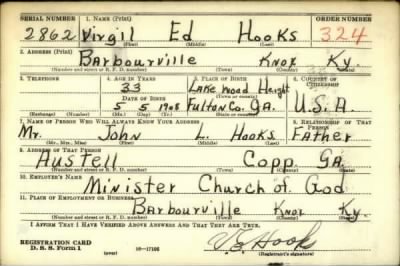 SERIAL NUMBER 1. NAME (Print) ORDER NUMBER
2862 Virgil Ed Hooks 324
(First) (Middle) (Last)
2. ADDRESS (Print)
Barbourville Knox Ky.
(Number and street or R. F. D. number) (Town) (County) (State)
3. TELEPHONE 4. AGE IN YEARS 5. PLACE OF BIRTH 6. COUNTRY OF CITIZENSHIP
33 Lake Wood Height
DATE OF BIRTH
5 5 1908 Fulton Co. GA. U.S.A.
(Exchange) (Number) (Mo.) (Day) (Yr.) (State or country)
7. NAME OF PERSON WHO WILL ALWAYS KNOW YOUR ADDRESS 8. RELATIONSHIP OF THAT PERSON
Mr. John L. Hooks Father
(Mr., Mrs., Miss) (First) (Middle) (Last)
9. ADDRESS OF THAT PERSON
Austell Copp. GA.
(Number and street or R. F. D. number) (Town) (County) (State)
10. EMPLOYER'S NAME
Minister Church of God
11. PLACE OF EMPLOYMENT OR BUSINESS
Barbourville Knox Ky.
(Number and street or R. F. D. number) (Town) (County) (State)
I AFFIRM THAT I HAVE VERIFIED ABOVE ANSWERS AND THAT THEY ARE TRUE.
REGISTRATION CARD
D. S. S. Form 1 (over) 16—17105 V. E. Hook
(Registrant's signature)